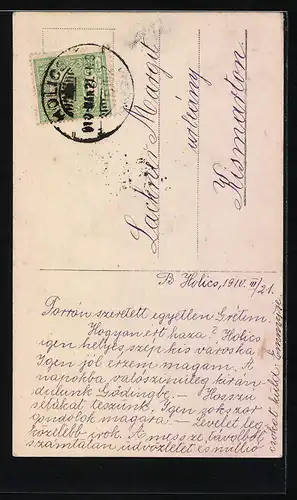 HOLICS
910 MÁR 21
Lackner Margit
urleány
Kismarton
Holics, 1910. III/21.
Forrón szeretett egyetlen Grétem.
Hogyan ért haza? Holics
igen helyes szép kis városka
Igen jól érzem magam. A
napokba valószinüleg kirán-
dulunk Gödingbe. — Hosszú
sétákat teszünk. Igen sokszor
gondolok magára. — Levelet leg-
közelebb irok. A messze távolból
számtalan üdvözletet és millió
csókot küld: